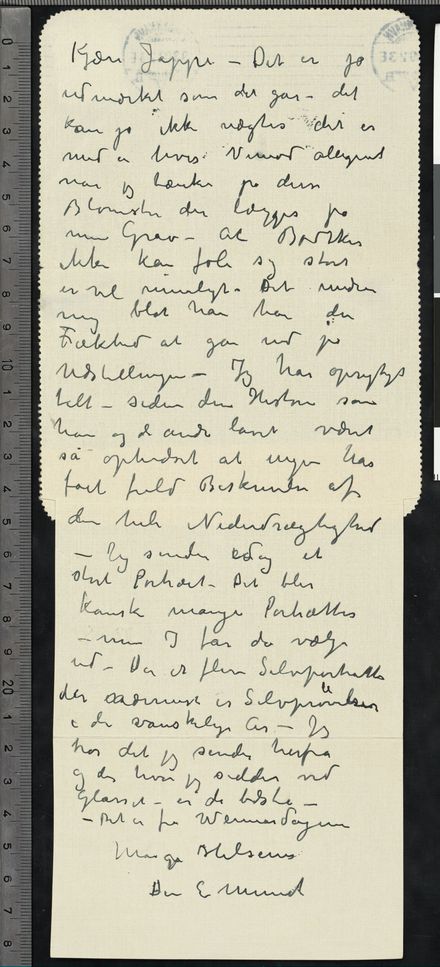 Kjære Jappe – Det er jo
udmærket som det går – det
kan jo ikke nægtes det er
med en hvis Vemod alligevel
når jeg tænker på disse
Blomster der lægges på
min Grav – At Bødtker
ikke kan føle sig stort
er vel rimeligt – Det undrer
mig blot han har den
Frækhed at gå ind på
Udstillingen – Jeg har oprigtigt
talt – siden den Historie som
han og de andre lavet været
så ophidset at ingen har
fået fuld Beskrivelse af
den hele Nederdrægtighed
– Jeg sender idag et
stort Portræt – Det blir
kanske mange Portrætter
– men I får da vælge
ud – Der er flere Selvportrætter
der nærmest er Selvprøvelser
i de vanskelige År – Jeg
tror det jeg sender herfra
og det hvor jeg sidder ved
Glasset – er de bedste –
– Det er fra Weimardagene
Mange Hilsener
Din E Munch